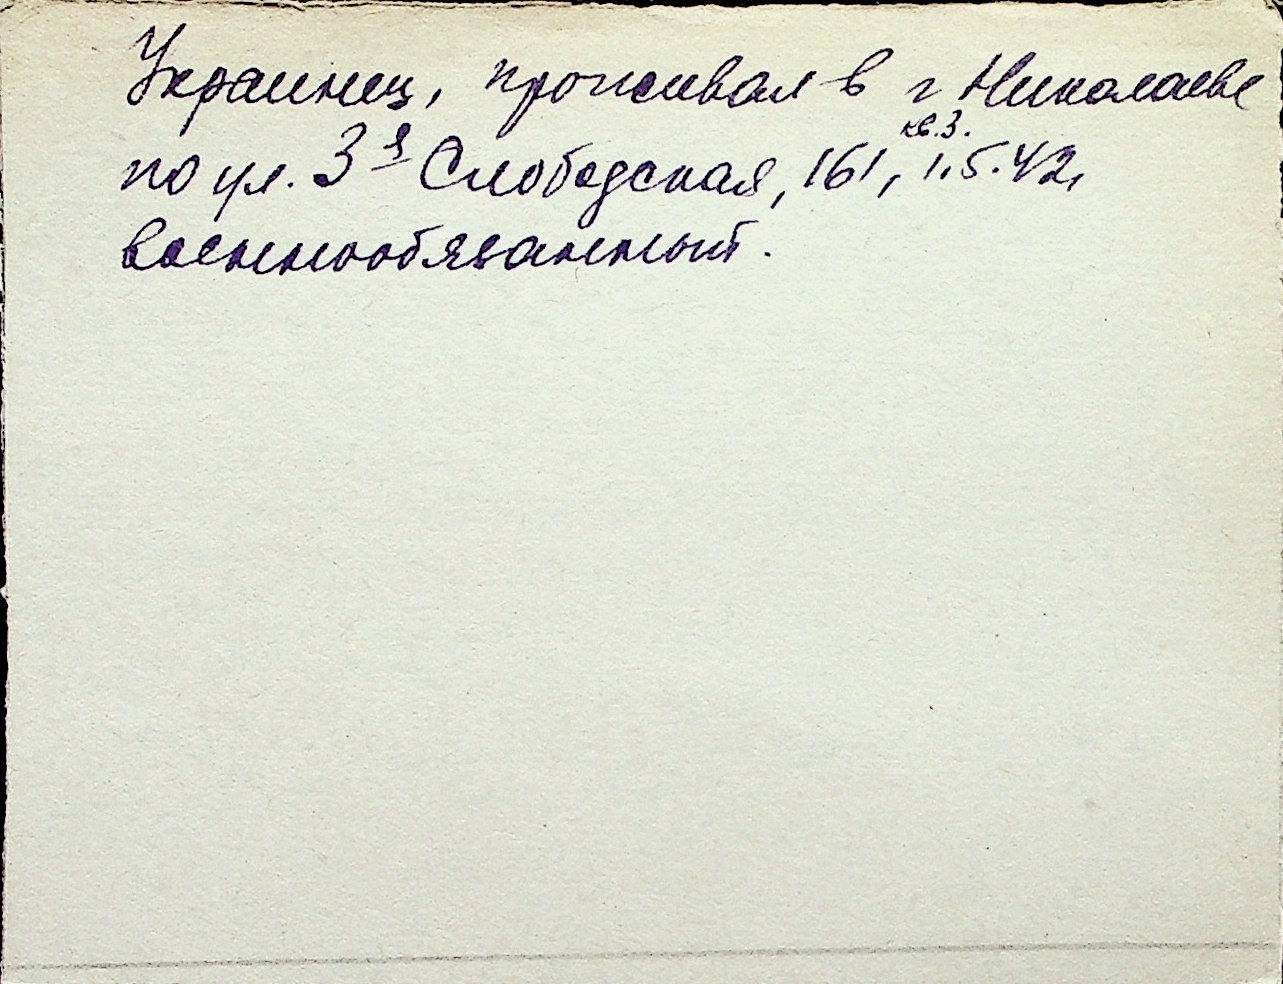 Украинец, проживал в г Николаеве
по ул. 3я Слободская, 161, кв.3. 1.5.42,
военнообязанный.